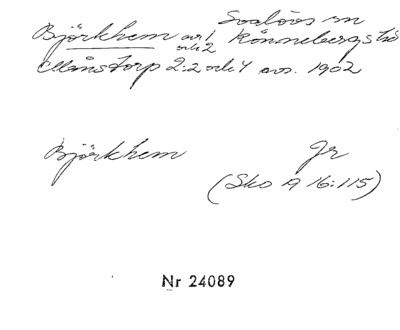 Svalövs sn
Björkhem nr 1 Rönnebergs hd
och 2
Månstorp 2:2 och 4 avs. 1902
Björkhem Jr
(Sko A 16:115)
Nr 24089